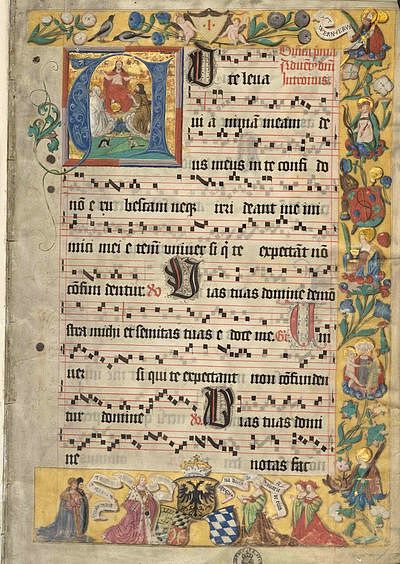 D̄nica p̄ma
Adue̅t9 d̄ni
Introitus
D te leua
ui a nimam meam de
us meus in te confi do
nō e ru bescam neq3 irri deant me ini
mici mei e teni̅ vniuer si q̄ te expectant nō
cōfun dentur. Vias tuas domine demō
stra michi et semitas tuas e doce me. Vn
uer si qui te expectant non cōfunden
tur domine Vias tuas domi
ne notas fac